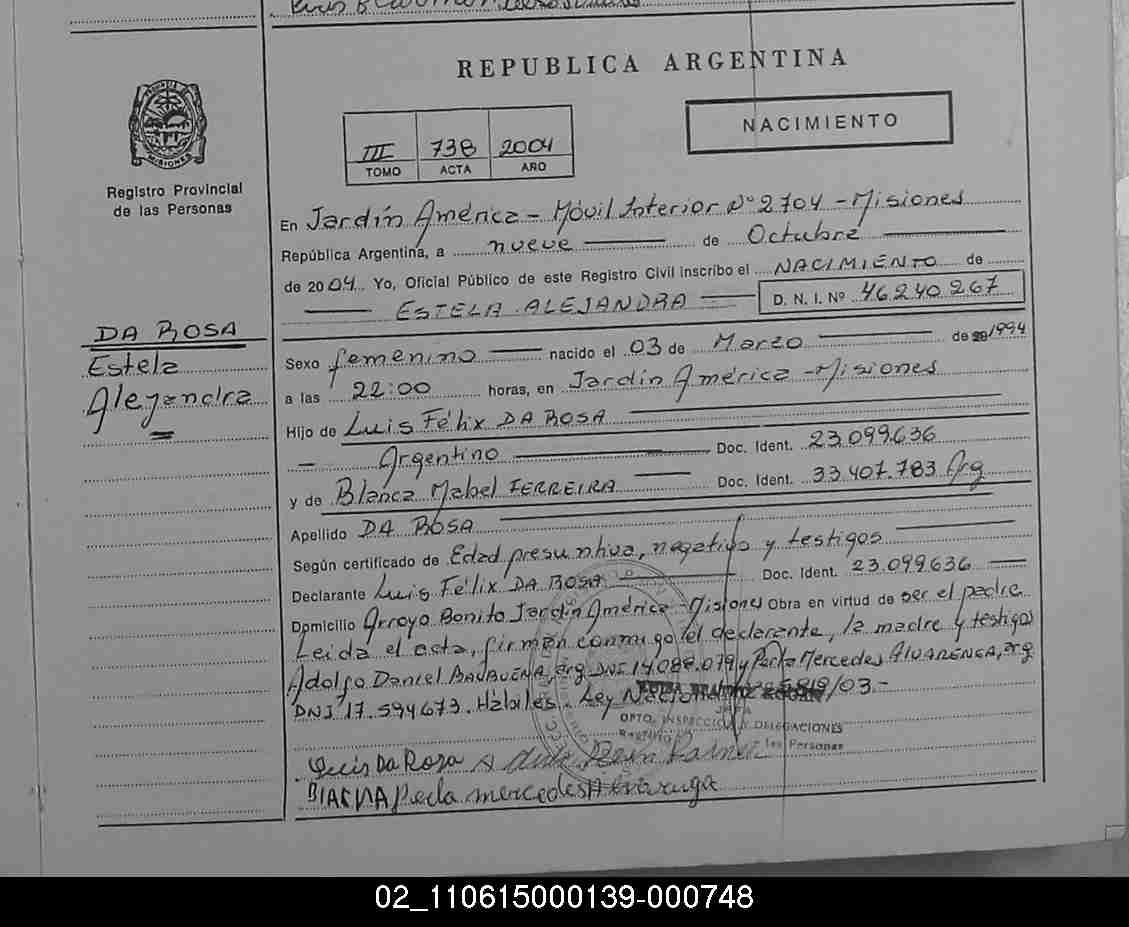 REPUBLICA ARGENTINA
NACIMIENTO
III 738 2004
TOMO ACTA AÑO
Registro Provincial
de las Personas
DA ROSA
Estela
Alejandra
En Jardín América - Móvil Interior Nº 2704 - Misiones
República Argentina, a nueve de Octubre
de 2004 Yo, Oficial Público de este Registro Civil inscribo el NACIMIENTO de
ESTELA ALEJANDRA D. N. I. Nº 46240267
Sexo femenino nacido el 03 de Marzo de 1994
a las 22:00 horas, en Jardín América - Misiones
Hijo de Luis Félix DA ROSA
Argentino Doc. Ident. 23.099.636
y de Blanca Mabel FERREIRA Doc. Ident. 33.407.783 Arg
Apellido DA ROSA
Según certificado de Edad presuntiva, negativo y testigos
Declarante Luis Félix DA ROSA Doc. Ident. 23.099.636
Domicilio Arroyo Bonito Jardín América - Misiones Obra en virtud de ser el padre
Leida el acta, firman conmigo el declarante, la madre y testigos
Adolfo Daniel BALBUENA, arg DNI 14.088.079 y Perla Mercedes ALVARENGA, arg
DNI 17.594673. Hábiles. Ley Nacional /03.-
DPTO. INSPECCION Y DELEGACIONES
las Personas
Luis Da Rosa
BIACNA Perla mercedes
02_110615000139-000748